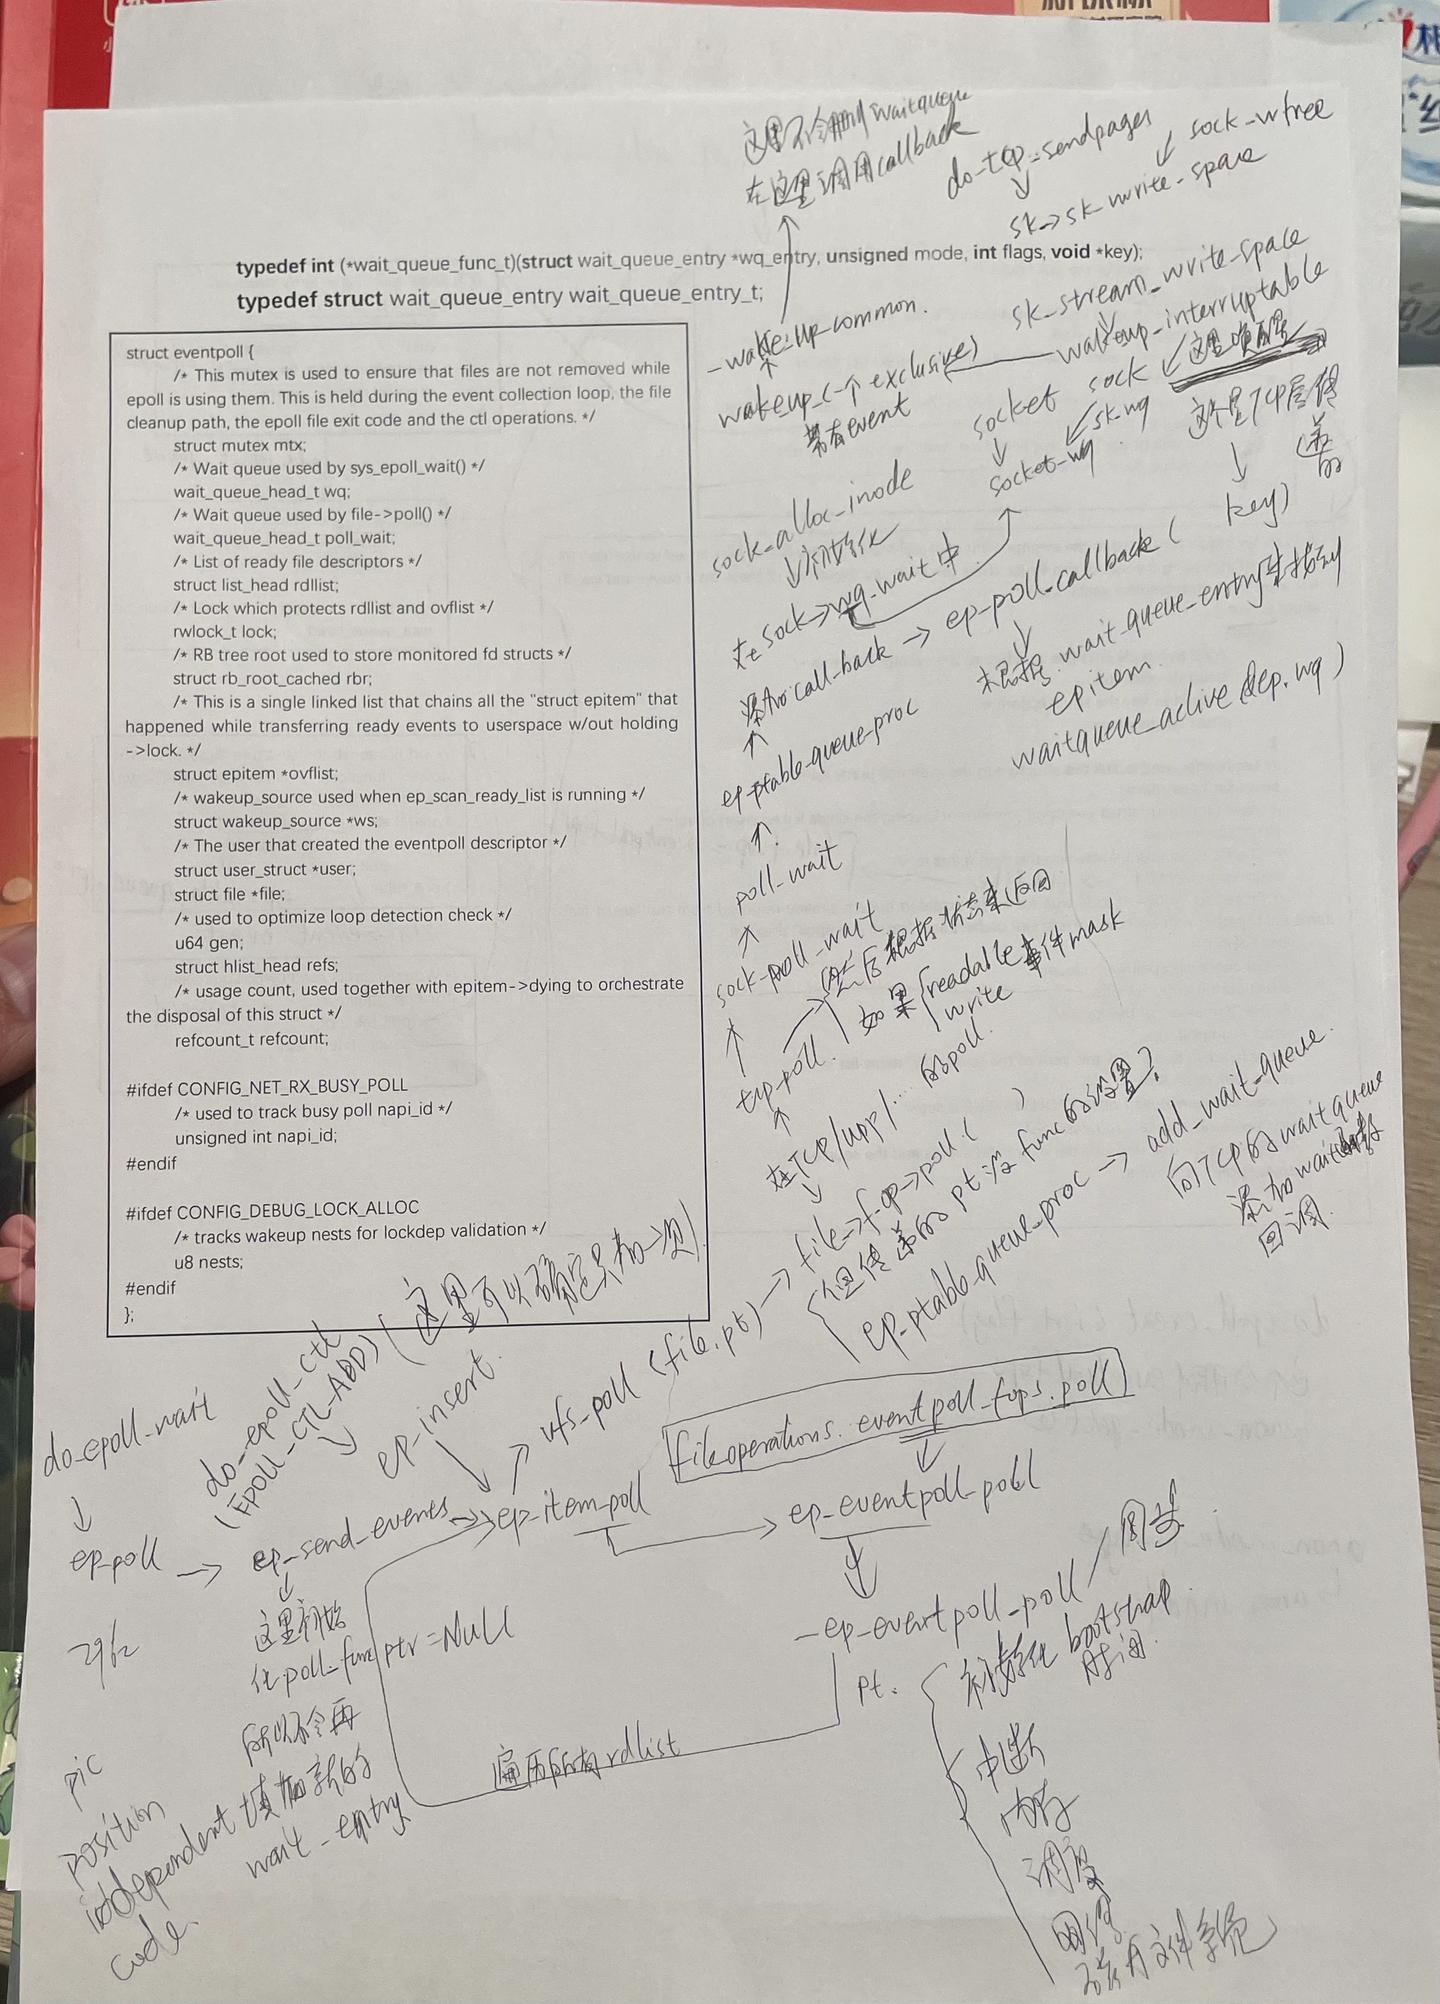 这里不会删waitqueue
在这里调用callback
do-tcp-sendpages
sock-wfree
sk->sk-write-space
typedef int (*wait_queue_func_t)(struct wait_queue_entry *wq_entry, unsigned mode, int flags, void *key);
typedef struct wait_queue_entry wait_queue_entry_t;
struct eventpoll {
/* This mutex is used to ensure that files are not removed while
epoll is using them. This is held during the event collection loop, the file
cleanup path, the epoll file exit code and the ctl operations. */
struct mutex mtx;
/* Wait queue used by sys_epoll_wait() */
wait_queue_head_t wq;
/* Wait queue used by file->poll() */
wait_queue_head_t poll_wait;
/* List of ready file descriptors */
struct list_head rdllist;
/* Lock which protects rdllist and ovflist */
rwlock_t lock;
/* RB tree root used to store monitored fd structs */
struct rb_root_cached rbr;
/* This is a single linked list that chains all the "struct epitem" that
happened while transferring ready events to userspace w/out holding
->lock. */
struct epitem *ovflist;
/* wakeup_source used when ep_scan_ready_list is running */
struct wakeup_source *ws;
/* The user that created the eventpoll descriptor */
struct user_struct *user;
struct file *file;
/* used to optimize loop detection check */
u64 gen;
struct hlist_head refs;
/* usage count, used together with epitem->dying to orchestrate
the disposal of this struct */
refcount_t refcount;
#ifdef CONFIG_NET_RX_BUSY_POLL
/* used to track busy poll napi_id */
unsigned int napi_id;
#endif
#ifdef CONFIG_DEBUG_LOCK_ALLOC
/* tracks wakeup nests for lockdep validation */
u8 nests;
#endif
};
sk_stream_write-space
-wake-up-common.
wakeup_interruptable
wakeup_(一个exclusive)
带有event
这里唤醒
socket sock
sk-wq
socket-wq
这个是TCP层传
递的
key)
sock_alloc_inode
初始化
在sock->wq-wait中
添加call-back -> ep-poll-callback (
根据 wait-queue-entry
epitem.
waitqueue_active (&ep.wq)
ep-ptable-queue-proc
poll-wait
sock-poll-wait
然后根据状态来返回
如果 readable 事件mask
write
tcp-poll.
在TCP/UDP/... 的poll.
file->f-op->poll ( )
但传递的pt 没 func的设置?
ep-ptable-queue-proc -> add_wait-queue.
向TCP的waitqueue
添加wait
回调.
(这里可以确定只加一次)
do-epoll-ctl
(EPOLL-CTL-ADD)
ep-insert.
vfs-poll (file.pt)
fileoperations. eventpoll_fops.poll
do-epoll-wait
ep-poll -> ep-send-events -> ep-item-poll
ep-eventpoll-poll
-ep-eventpoll-poll
同步
这里初始
化poll-func ptr = Null
所以不会再
填加新的
wait-entry
遍历所有rdlist
pt.
初始化 bootstrap
时间.
中断
内存
调度
网络
磁盘文件系统
pic
position
independent
code.